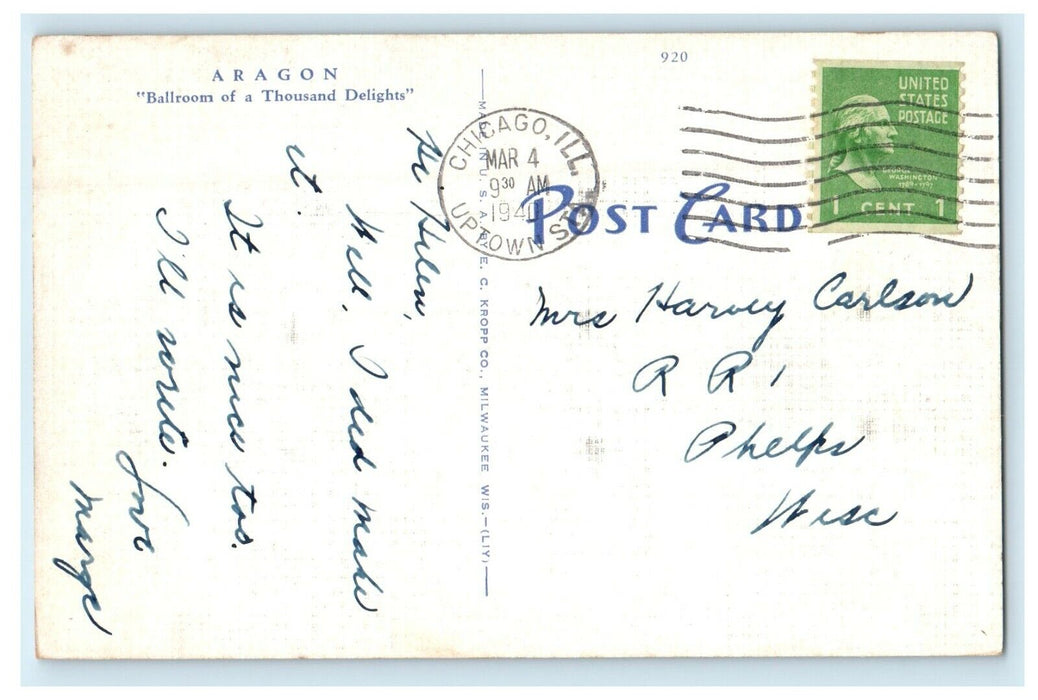 ARAGON
"Ballroom of a Thousand Delights"
Hi Helen,
Well, I did make
it.
It is nice too.
I'll write.
Love
Marge
MADE IN U. S. A. BY E. C. KROPP CO., MILWAUKEE WIS.—(LIY)
920
CHICAGO, ILL.
MAR 4
9 30 AM
1940
UPTOWN STA
UNITED
STATES
POSTAGE
GEORGE
WASHINGTON
1789-1797
1 CENT 1
POST CARD
Mrs Harvey Carlson
R R 1
Phelps
Wisc